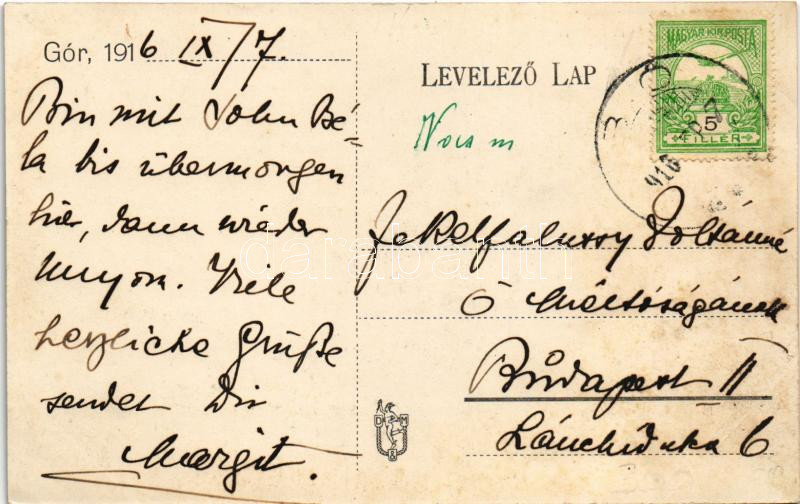 Gór, 1916 IX/7.
Bin mit Sohn Bé-
la bis übermorgen
hier, dann wieder
Unyom. Viele
herzliche Grüße
sendet Dir
Margit.
LEVELEZŐ LAP
MAGYAR KIR. POSTA
5
FILLÉR
916
Jekelfalussy Zoltánné
Ő Méltóságának
Budapest II
Lánchíd utca 6
D M
R
darabanth